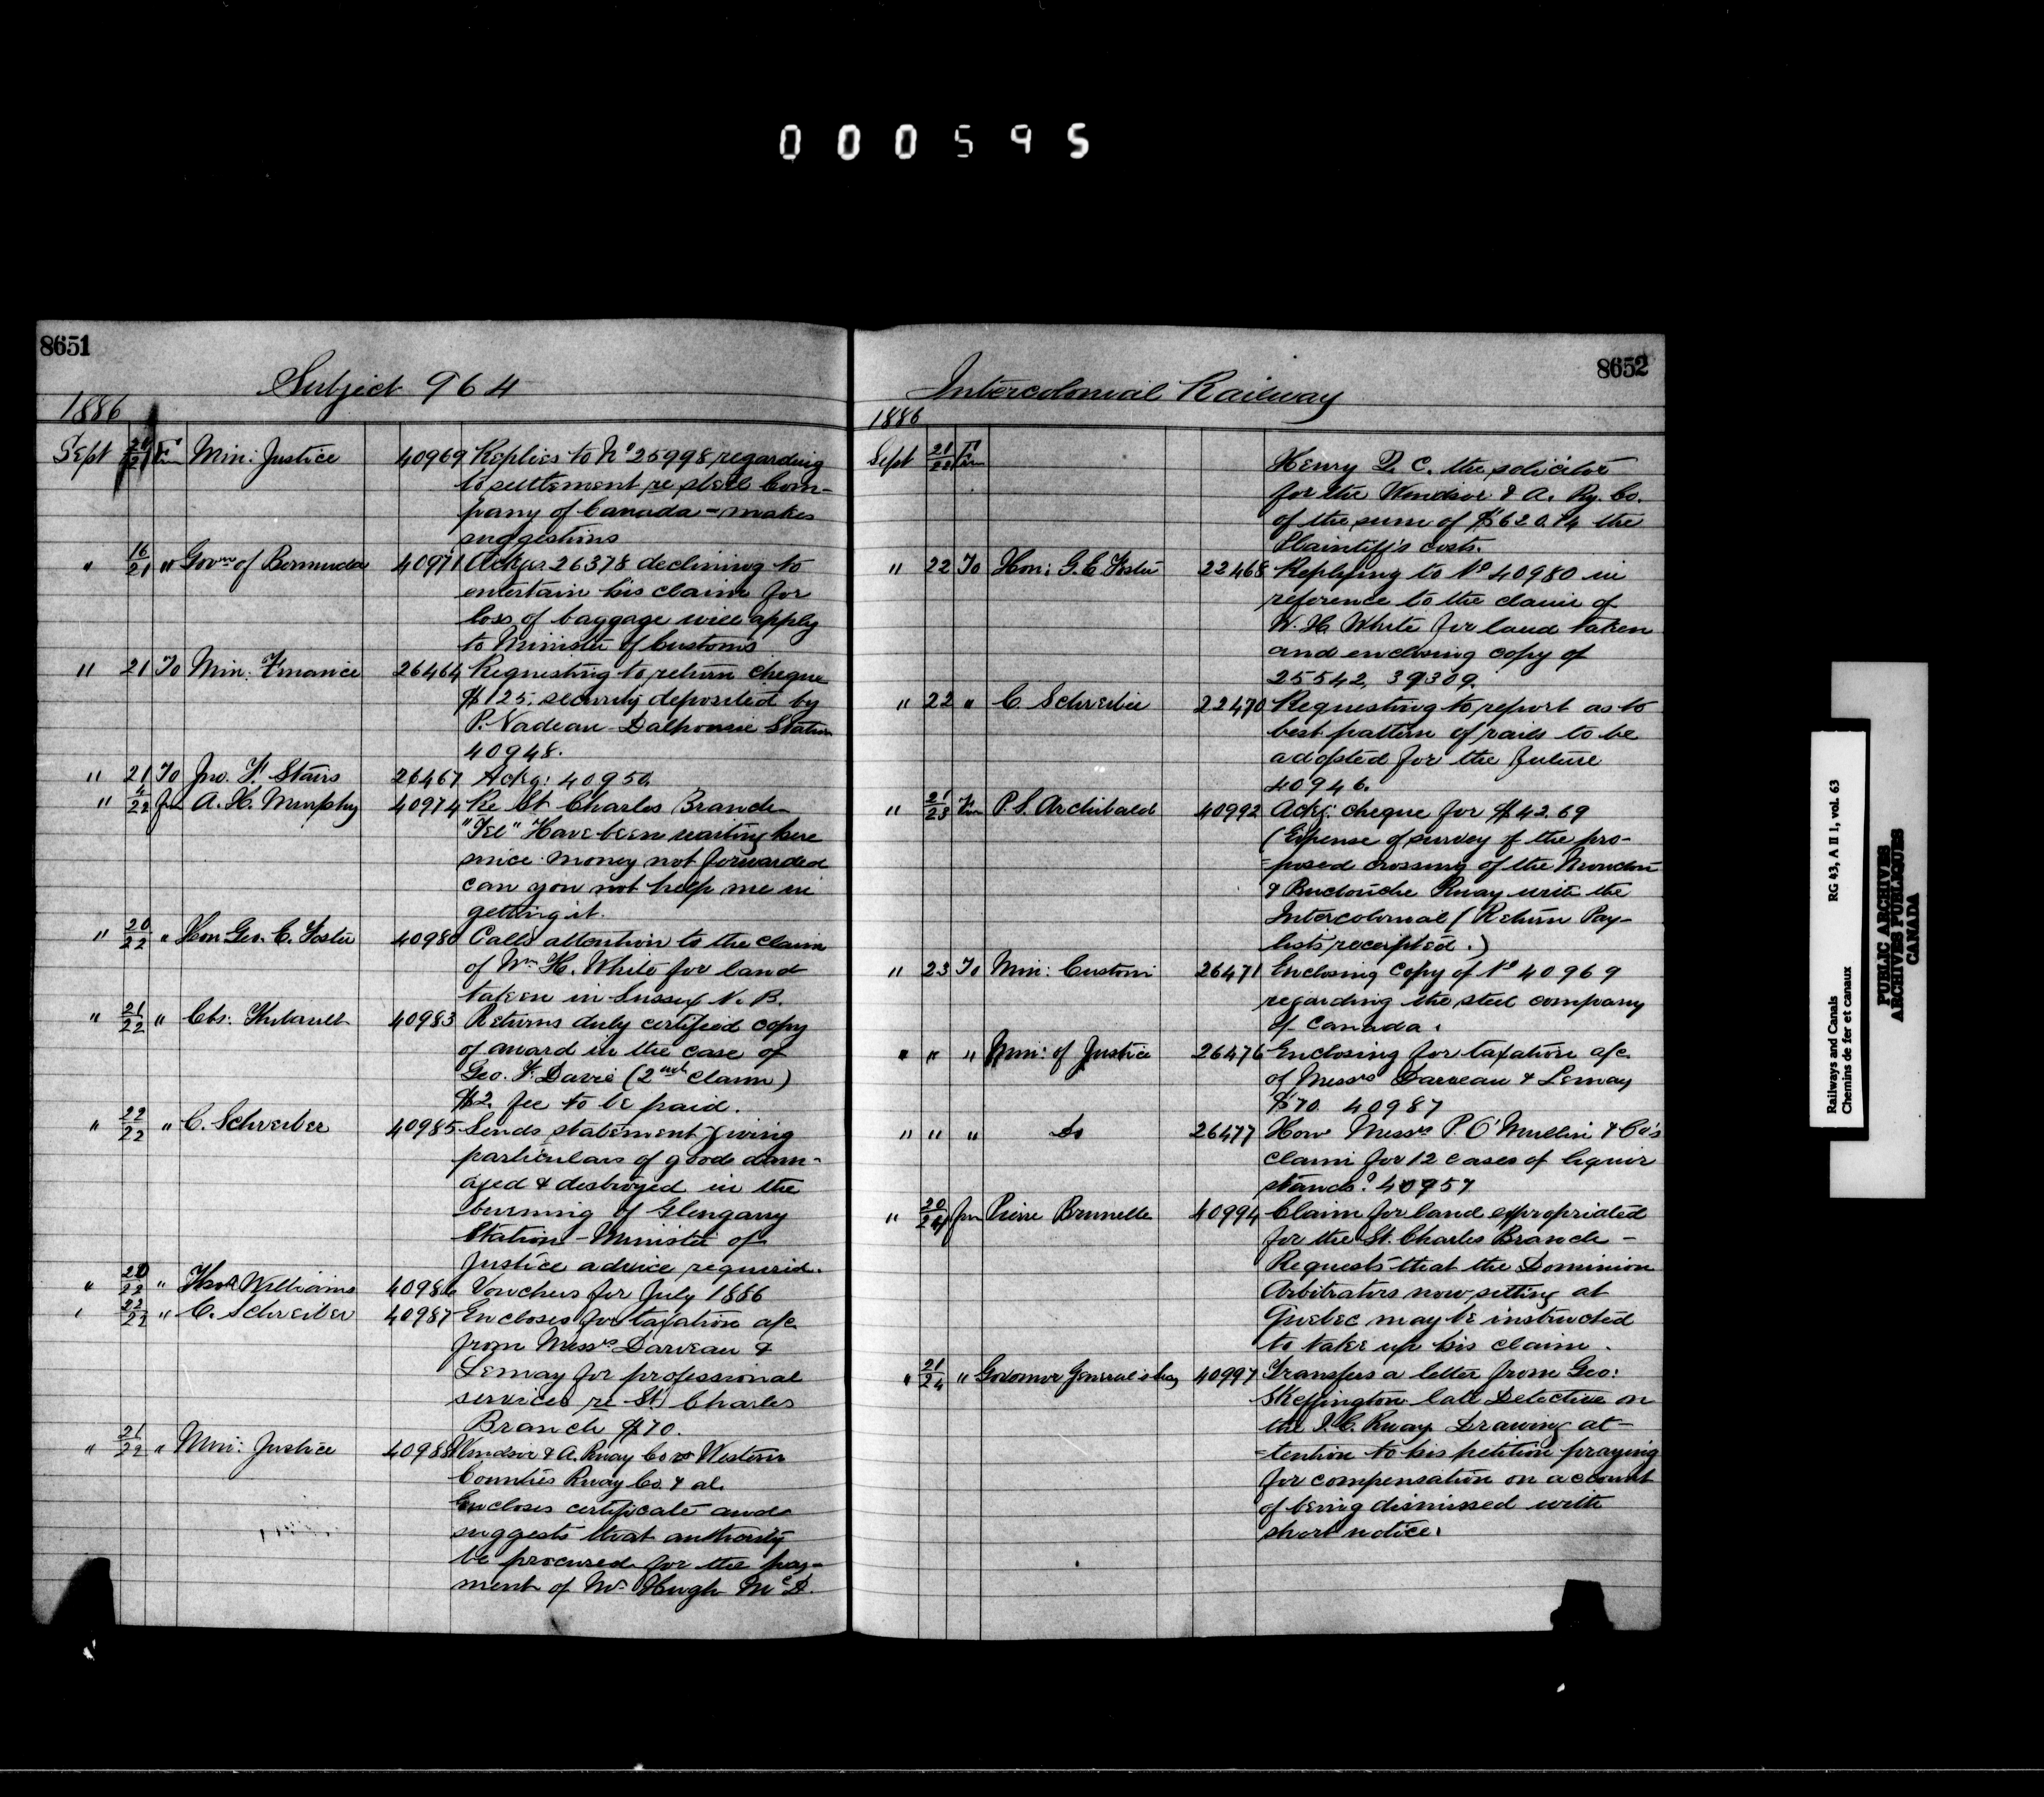 000595
8651
Subject 964
1886
Sept 20/21 Fm Min: Justice 40969 Replies to No 25998, regarding
to settlement re steel Com-
pany of Canada - makes
suggestions
" 16/21 " Govr of Bermuda 40971 Ackgs 26378 declining to
entertain his claim for
loss of baggage will apply
to Minister of Customs
" 21 To Min: Finance 26464 Requesting to return cheque
$125. security deposited by
P. Nadeau Dalhousie Station
40948.
" 21 To Jno. F. Stairs 26467 Ackg: 40950.
" 22 fm A. H. Murphy 40974 Re St Charles Branch
"Tel" Have been waiting here
since money not forwarded
can you not help me in
getting it.
" 20/22 " Hon Geo. E. Foster 40980 Calls attention to the claim
of Wm H. White for land
taken in Sussex N. B.
" 21/22 " Chs. Thibault 40983 Returns duly certified copy
of award in the case of
Geo. F. Davis (2nd claim)
$2. fee to be paid.
" 22/22 " C. Schreiber 40985 Sends statement giving
particulars of goods dam-
aged & destroyed in the
burning of Glengarry
Station - Minister of
Justice advice required.
" 20/22 " Thos Williams 40986 Vouchers for July 1886
" 22/22 " C. Schreiber 40987 Encloses for taxation a/c
from Messrs Darveau &
Lemay for professional
services re St. Charles
Branch $70.
" 21/22 " Min: Justice 40988 Windsor & A. Rway Co vs Western
Counties Rway Co. & al.
Encloses certificate and
suggests that authority
be procured for the pay-
ment of Mr Hugh McD.
8652
Intercolonial Railway
1886
Sept 21/22 Fm Henry Q. C. the solicitor
for the Windsor & A. Ry. Co.
of the sum of $620.74 the
Plaintiff's costs.
" 22 To Hon: G. E. Foster 22468 Replying to No 40980 in
reference to the claim of
W. H. White for land taken
and enclosing copy of
25542, 39309.
" 22 " C. Schreiber 22470 Requesting to report as to
best pattern of rails to be
adopted for the future
40946.
" 21/23 Fm P. S. Archibald 40992 Ackg: cheque for $42.69
(Expense of survey of the pro-
=posed crossing of the Moncton
& Buctouche Rway with the
Intercolonial (Return Pay-
lists receipted.)
" 23 To Min: Customs 26471 Enclosing copy of No 40969
regarding the steel company
of Canada.
" " " Min: of Justice 26476 Enclosing for taxation a/c
of Messrs Darveau & Lemay
$70. 40987
" " " Do 26477 How Messrs P. O'Mullin & Co's
claim for 12 cases of liquor
stands? 40957
" 20/24 fm Pierre Brunelle 40994 Claim for land expropriated
for the St. Charles Branch -
Requests that the Dominion
Arbitrators now sitting at
Quebec may be instructed
to take up his claim.
" 21/24 " Governor General's Secy 40997 Transfers a letter from Geo:
Skeffington late Detective on
the I. C. Rway Drawing at-
=tention to his petition praying
for compensation on account
of being dismissed with
short notice.
Railways and Canals RG 43, A II 1, vol. 63
Chemins de fer et canaux
PUBLIC ARCHIVES
ARCHIVES PUBLIQUES
CANADA